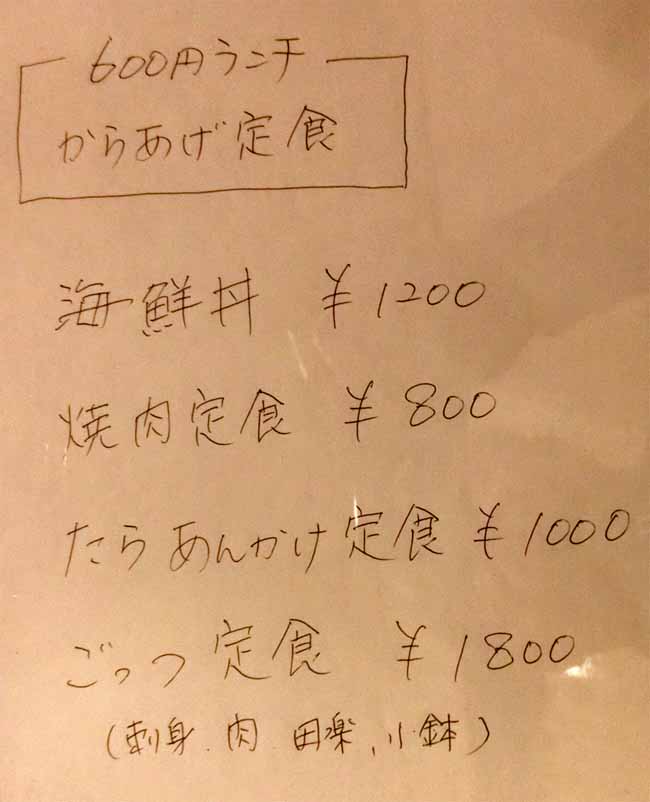 600円ランチ
からあげ定食
海鮮丼 ¥1200
焼肉定食 ¥800
たらあんかけ定食 ¥1000
ごっつ定食 ¥1800
(刺身.肉 田楽,小鉢)